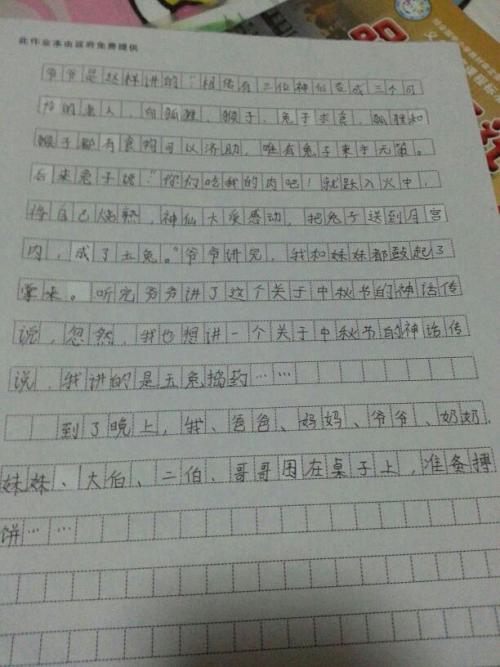 此作业本由政府免费提供
爷爷是这样讲的：相传有三位神仙变成三个可
怜的老人，向狐狸、猴子、兔子求食，狐狸和
猴子都有食物可以济助，唯有兔子束手无策。
后来兔子说：“你们吃我的肉吧！就跃入火中，
将自己烧熟，神仙大受感动，把兔子送到月宫
内，成了玉兔。”爷爷讲完，我和妹妹都鼓起了
掌来。听完爷爷讲了这个关于中秋节的神话传
说，忽然，我也想讲一个关于中秋节的神话传
说，我讲的是玉兔捣药……
到了晚上，我、爸爸、妈妈、爷爷、奶奶、
妹妹、大伯、二伯、哥哥围在桌子上，准备搏
饼……